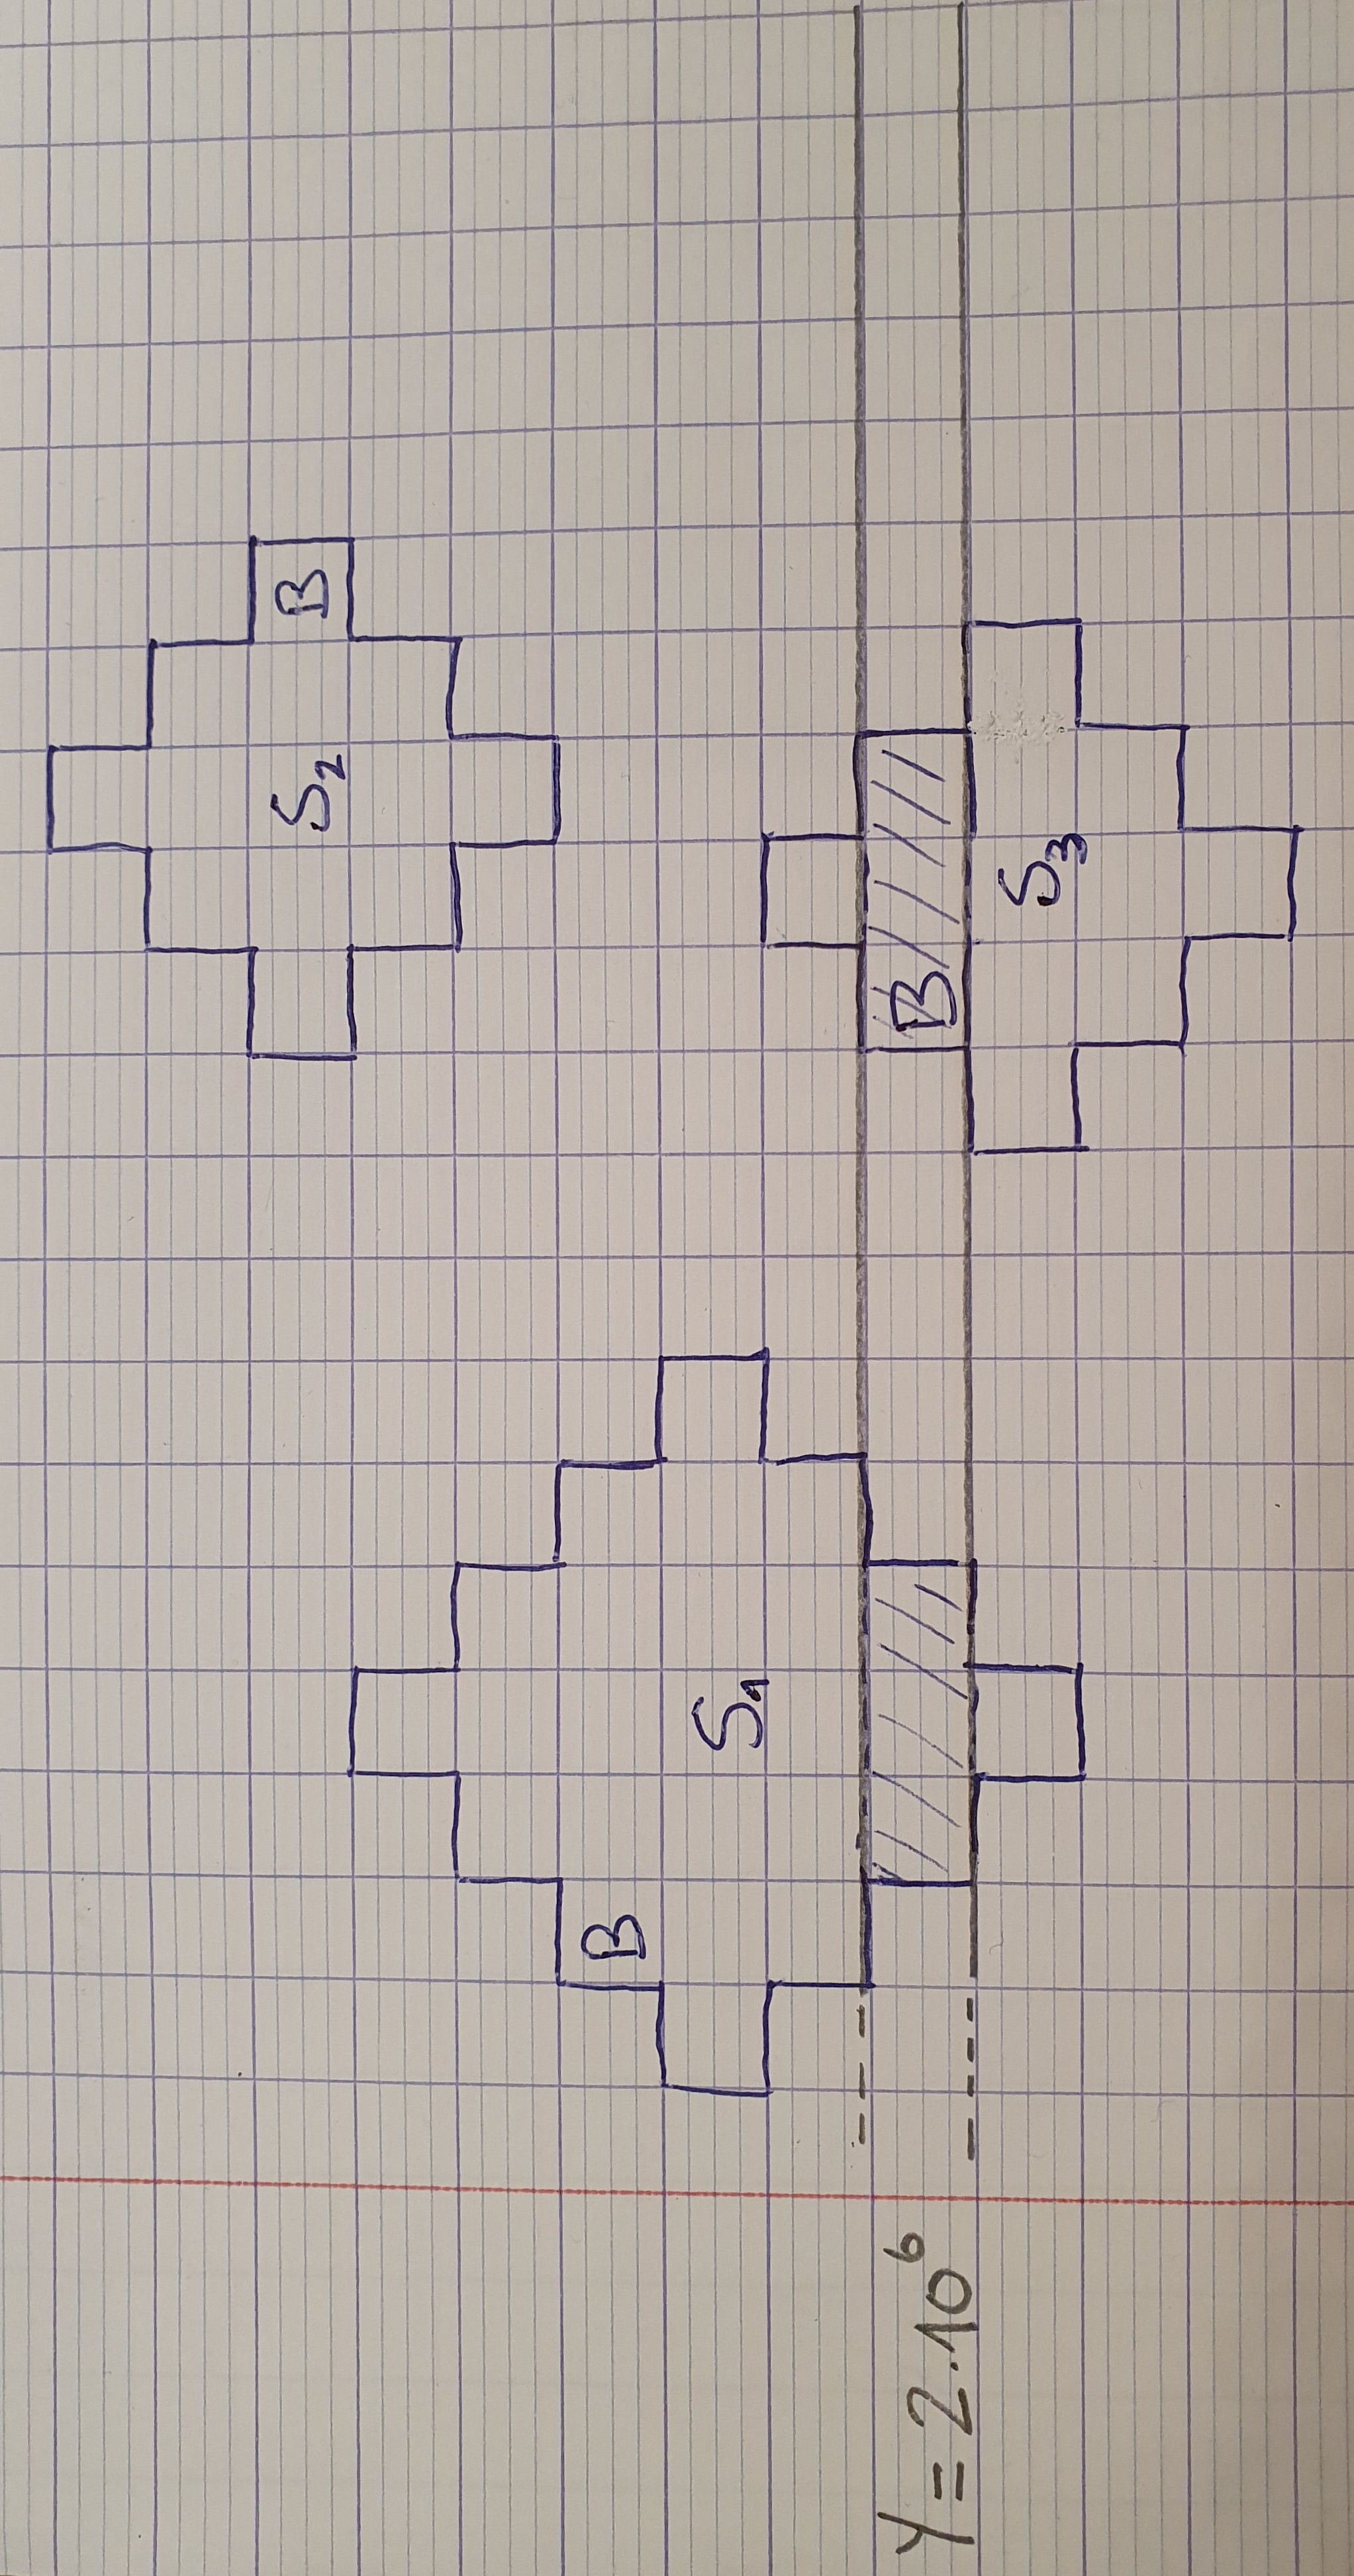 S₂ B
B
S₁
Y = 2.10⁶
B
S₃